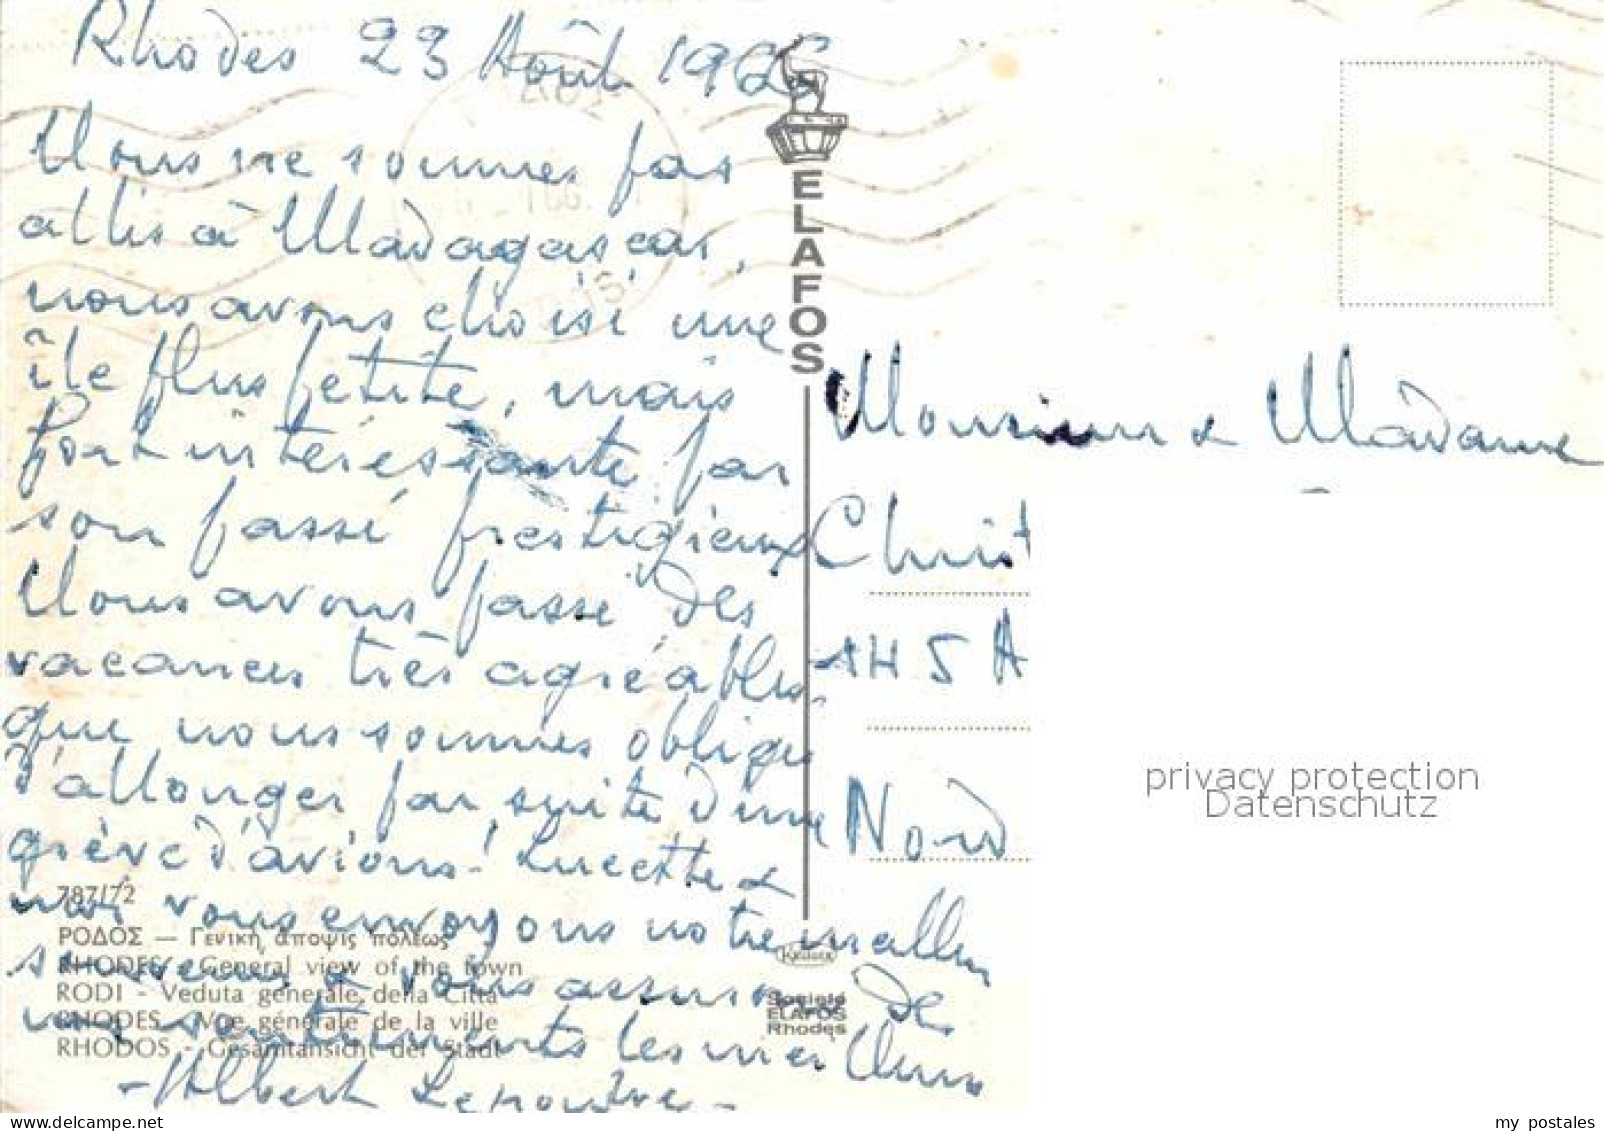 Rhodes 23 Août 1966
Nous ne sommes pas
allés à Madagascar,
nous avons choisi une
île plus petite, mais
fort intéressante par
son passé prestigieux
Nous avons passé des
vacances très agréables
que nous sommes obligé
d'allonger par suite d'une
grève d'avions! Lucette &
moi vous envoyons notre meilleur
souvenir & vous assurons de
nos sentiments les meilleurs
- Albert
ELAFOS
Monsieur & Madame
Christ
145 A
Nord
787/72
ΡΟΔΟΣ — Γενική άποψις πόλεως
RHODES - General view of the town
RODI - Veduta generale della Città
RHODES - Vue générale de la ville
RHODOS - Gesamtansicht der Stadt
Société
ELAFOS
Rhodes
privacy protection
Datenschutz
my postales